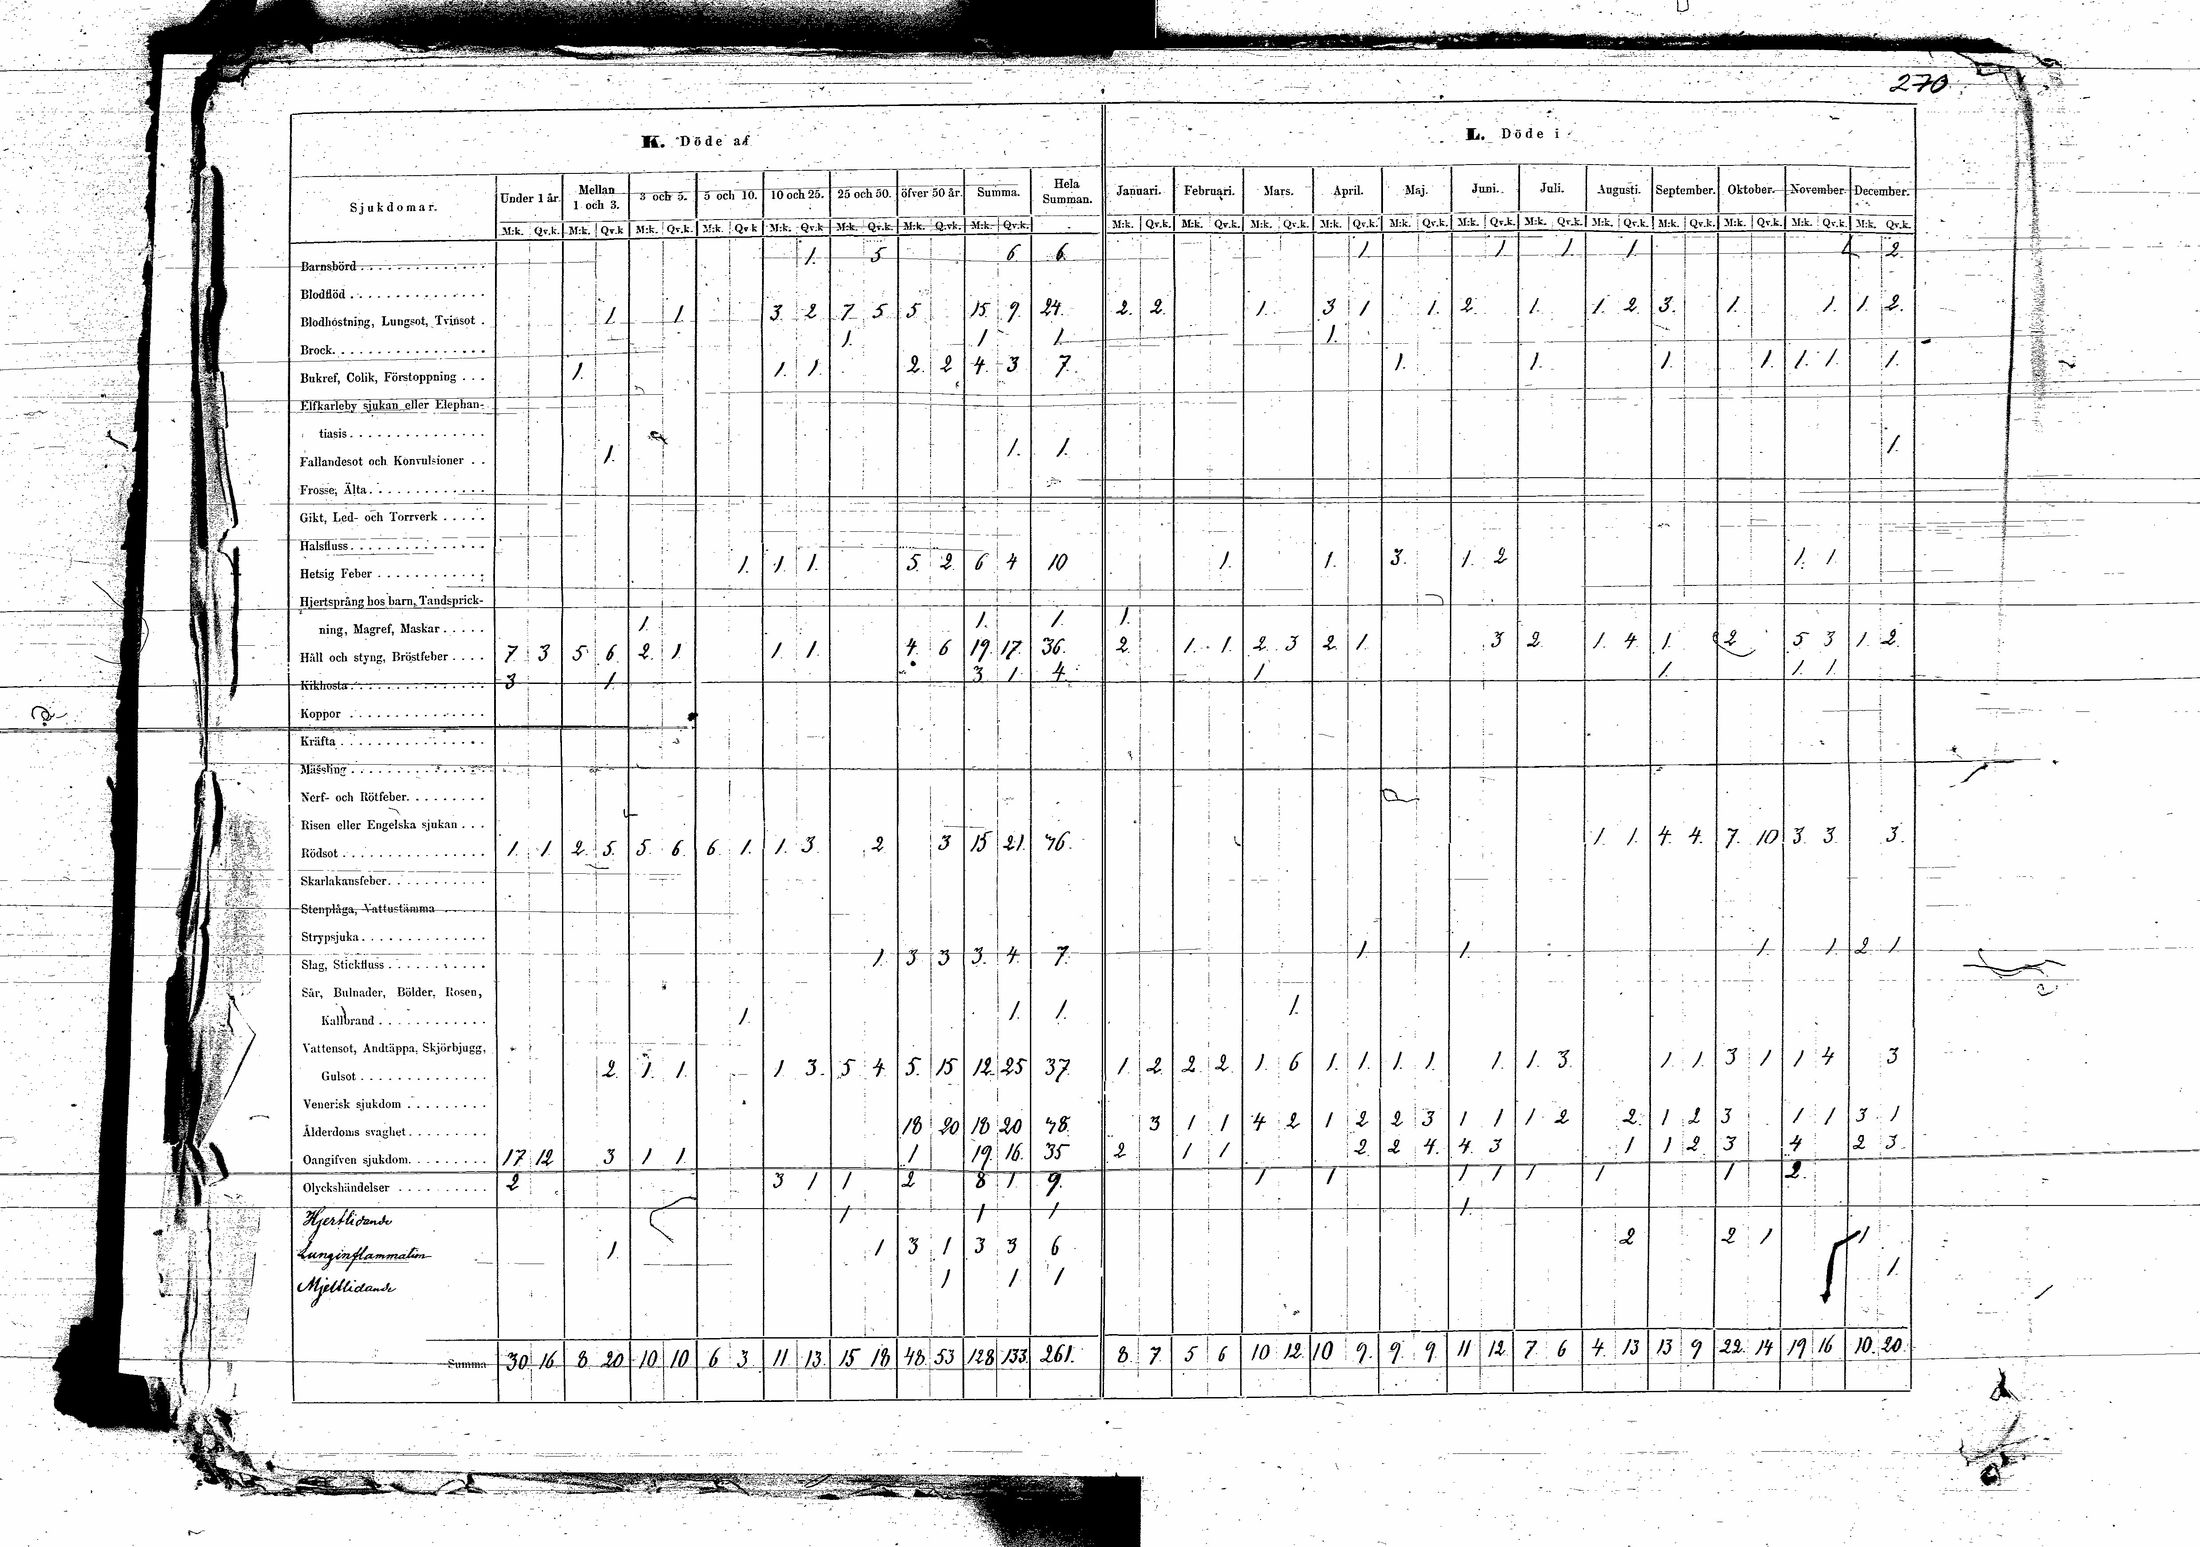 270
K. Döde af
L. Döde i
Sjukdomar. Under 1 år. Mellan 1 och 3. 3 och 5. 5 och 10. 10 och 25. 25 och 50. öfver 50 år. Summa. Hela Summan. Januari. Februari. Mars. April. Maj. Juni. Juli. Augusti. September. Oktober. November December.
M:k. Qv.k. M:k. Qv.k M:k. Qv.k. M:k. Qv.k M:k. Qv.k M:k. Qv.k. M:k. Qv.k. M:k. Qv.k. M:k. Qv.k. M:k. Qv.k. M:k. Qv.k. M:k. Qv.k. M:k. Qv.k. M:k. Qv.k. M:k. Qv.k. M:k. Qv.k. M:k. Qv.k. M:k. Qv.k. M:k. Qv.k. M:k. Qv.k.
Barnsbörd 1. 5 6 6. 1. 1 1. 1 1 2.
Blodflöd
Blodhostning, Lungsot, Tvinsot 1 1. 3 2 7 5 5 15 9 24 2. 2. 1. 3 1 1. 2. 1. 1. 2. 3. 1. 1. 1. 2.
Brock 1. 1 1. 1.
Bukref, Colik, Förstoppning 1. 1. 1. 2. 2 4. 3 7. 1. 1. 1. 1. 1. 1. 1.
Elfkarleby sjukan eller Elephan-
tiasis
Fallandesot och Konvulsioner 1. 1. 1. 1.
Frosse, Älta
Gikt, Led- och Torrverk
Halsfluss
Hetsig Feber 1. 1. 1. 5. 2. 6 4 10 1. 1. 3. 1. 2 1. 1.
Hjertsprång hos barn, Tandsprick-
ning, Magref, Maskar 1. 1. 1. 1.
Håll och styng, Bröstfeber 7 3 5 6. 2. 1. 1. 1. 4. 6 19. 17. 36. 2. 1. 1. 2 3 2. 1. 3 2. 1. 4. 1. 2 5 3 1. 2.
Kikhosta 3 1. 3 1. 4. 1. 1. 1. 1.
Koppor
Kräfta
Mässling
Nerf- och Rötfeber
Risen eller Engelska sjukan
Rödsot 1. 1. 2. 5. 5. 6. 6. 1. 1. 3. 2. 3 15 21. 46. 1. 1. 4. 4. 7. 10 3 3. 3.
Skarlakansfeber
Stenplåga, Vattustämma
Strypsjuka
Slag, Stickfluss 1. 3 3 3. 4. 7. 1. 1. 1. 1. 2 1
Sår, Bulnader, Bölder, Rosen,
Kallbrand 1. 1. 1. 1.
Vattensot, Andtäppa, Skjörbjugg,
Gulsot 2. 1. 1. 1 3. 5 4 5. 15 12. 25 37. 1. 2. 2. 2. 1. 6 1. 1. 1. 1. 1. 1. 3. 1. 1. 3 1 1 4 3
Venerisk sjukdom
Ålderdoms svaghet 18 20 18 20 48. 3 1 1 4 2 1 2 2 3 1 1 1 2 2. 1 2 3 1 1 3 1
Oangifven sjukdom 17 12 3 1 1 1 19 16. 35 2 1 1 2. 2 4. 4. 3 1 1 2 3 4 2 3.
Olyckshändelser 2 3 1 1 2 8 1 9. 1 1 1 1 1 1 1 2.
Hjertlidande 1 1 1 1.
Lunginflammation 1. 1 3 1 3 3 6 2 2 1 1
Mjeltlidande 1 1 1 1.
Summa 30 16. 8. 20 10 10 6 3. 11 13. 15 18 48. 53 128 133. 261. 8. 7. 5 6 10 12. 10 9. 9. 9. 11 12. 7 6 4. 13 13 9 22. 14 19 16 10. 20.